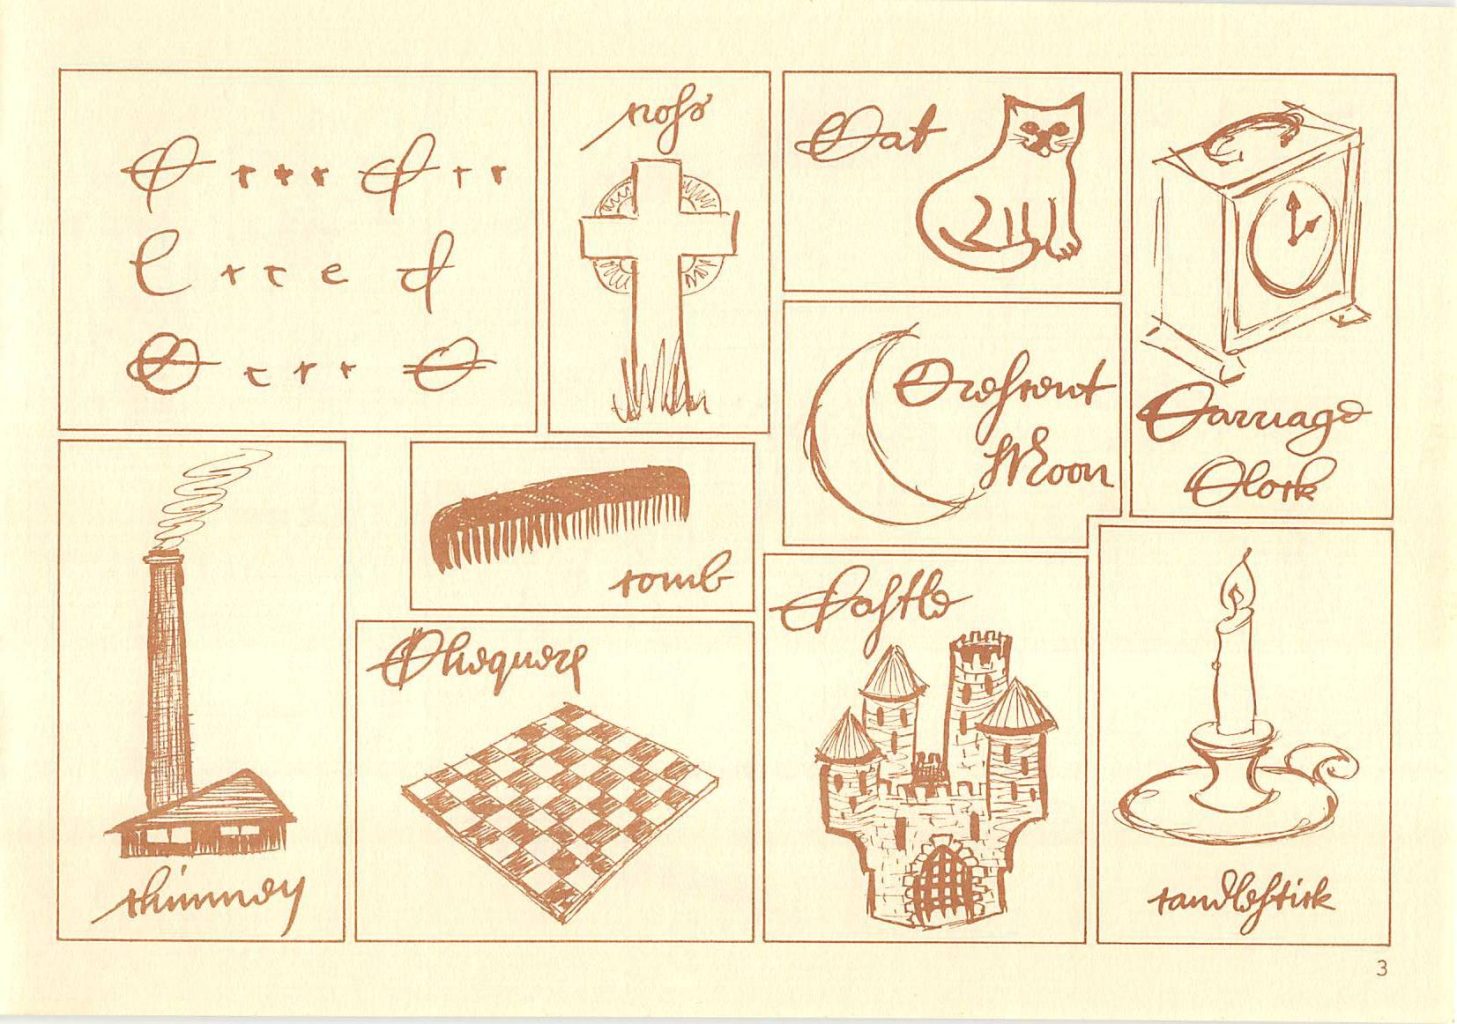 C c c c C c c c
C c c c C
C c c c C
cross
Cat
Carriage
Clock
Crescent
Moon
chimney
comb
Chequers
Castle
candlestick
3